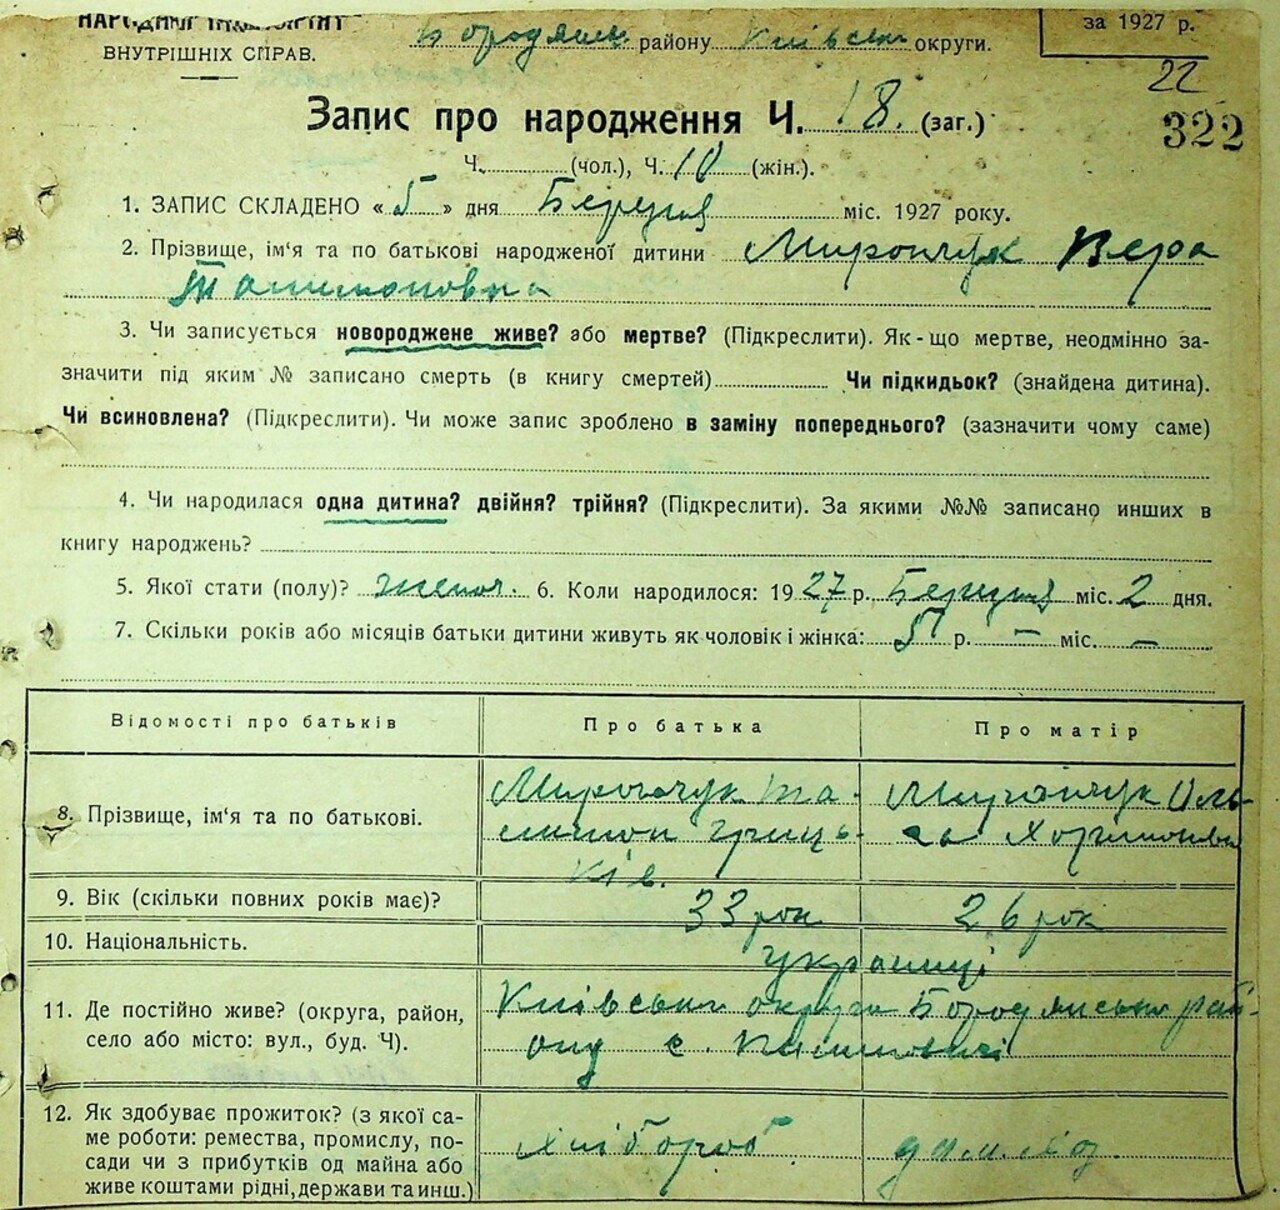 ВНУТРІШНІХ СПРАВ.
району Київськ округи.
за 1927 р.
22
322
Запис про народження Ч. 18. (заг.)
Ч. (чол.), Ч. 10 (жін.).
1. ЗАПИС СКЛАДЕНО « 5 » дня Березня міс. 1927 року.
2. Прізвище, ім'я та по батькові народженої дитини Мирончук Вера
3. Чи записується новороджене живе? або мертве? (Підкреслити). Як-що мертве, неодмінно за-
значити під яким № записано смерть (в книгу смертей) Чи підкидьок? (знайдена дитина).
Чи всиновлена? (Підкреслити). Чи може запис зроблено в заміну попереднього? (зазначити чому саме)
4. Чи народилася одна дитина? двійня? трійня? (Підкреслити). За якими №№ записано инших в
книгу народжень?
5. Якої стати (полу)? женоч. 6. Коли народилося: 1927 р. Березня міс. 2 дня.
7. Скільки років або місяців батьки дитини живуть як чоловік і жінка: 5 р. — міс. —
Відомості про батьків Про батька Про матір
8. Прізвище, ім'я та по батькові. Мирончук Мирончук Оль-
га
9. Вік (скільки повних років має)? 33 рок 26 рок
10. Національність. українці
11. Де постійно живе? (округа, район, Київська округа Бородянська рай-
село або місто: вул., буд. Ч). ону с.
12. Як здобуває прожиток? (з якої са-
ме роботи: ремества, промислу, по- Хлібороб дом. хаз.
сади чи з прибутків од майна або
живе коштами рідні, держави та инш.)